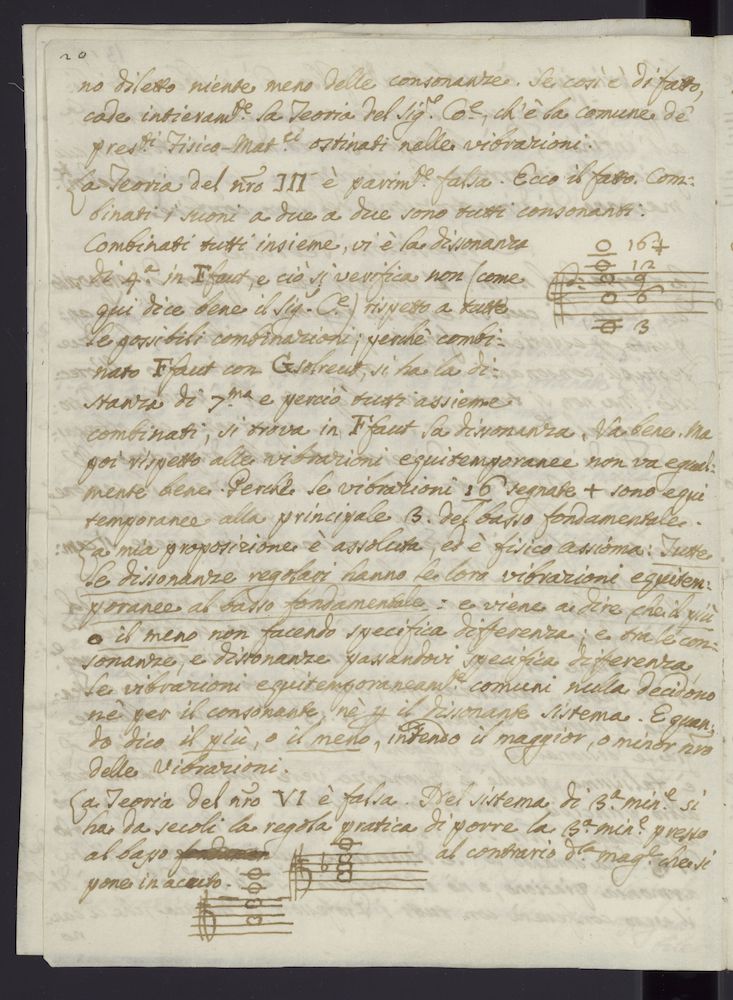 20
no diletto niente meno delle consonanze. Se così è di fatto,
cade intieram.te la Teoria del Sig.r Co:e, ch'è la comune de'
pres.ti Fisico-Mat.ci ostinati nelle vibrazioni.
La Teoria del nro III è parim.te falsa. Ecco il fatto. Com:
binati i suoni a due a due sono tutti consonanti.
Combinati tutti insieme, vi è la dissonanza
di 4.a in Ffaut, e ciò si verifica non (come
qui dice bene il Sig.r C.e) rispetto a tutte
le possibili combinazioni; perchè combi:
nato Ffaut con Gsolreut, si ha la di:
stanza di 7.ma e perciò tutti assieme
combinati, si trova in Ffaut la dissonanza. Va bene. Ma
poi rispetto alle vibrazioni equitemporanee non va egual:
mente bene. Perchè le vibrazioni 16 segnate + sono equi
temporanee alla principale 3. del basso fondamentale.
La mia proposizione è assoluta, ed è fisico assioma: Tutte
le dissonanze regolari hanno le loro vibrazioni equitem:
poranee al basso fondamentale: e viene a dire che il più
o il meno non facendo specifica differenza; e tra le con:
sonanze, e dissonanze passandovi specifica differenza
le vibrazioni equitemporaneam.te comuni nulla decidono
nè per il consonante, nè p il dissonante sistema. E quan:
do dico il più, o il meno, intendo il maggior, o minor nro
delle vibrazioni.
La Teoria del nro VI è falsa. Nel sistema di 3.a min.e si
ha da secoli la regola pratica di porre la 3.a min.e presso
al basso al contrario d.la mag.e che si
pone in acuto.
16+
12
9
6
3